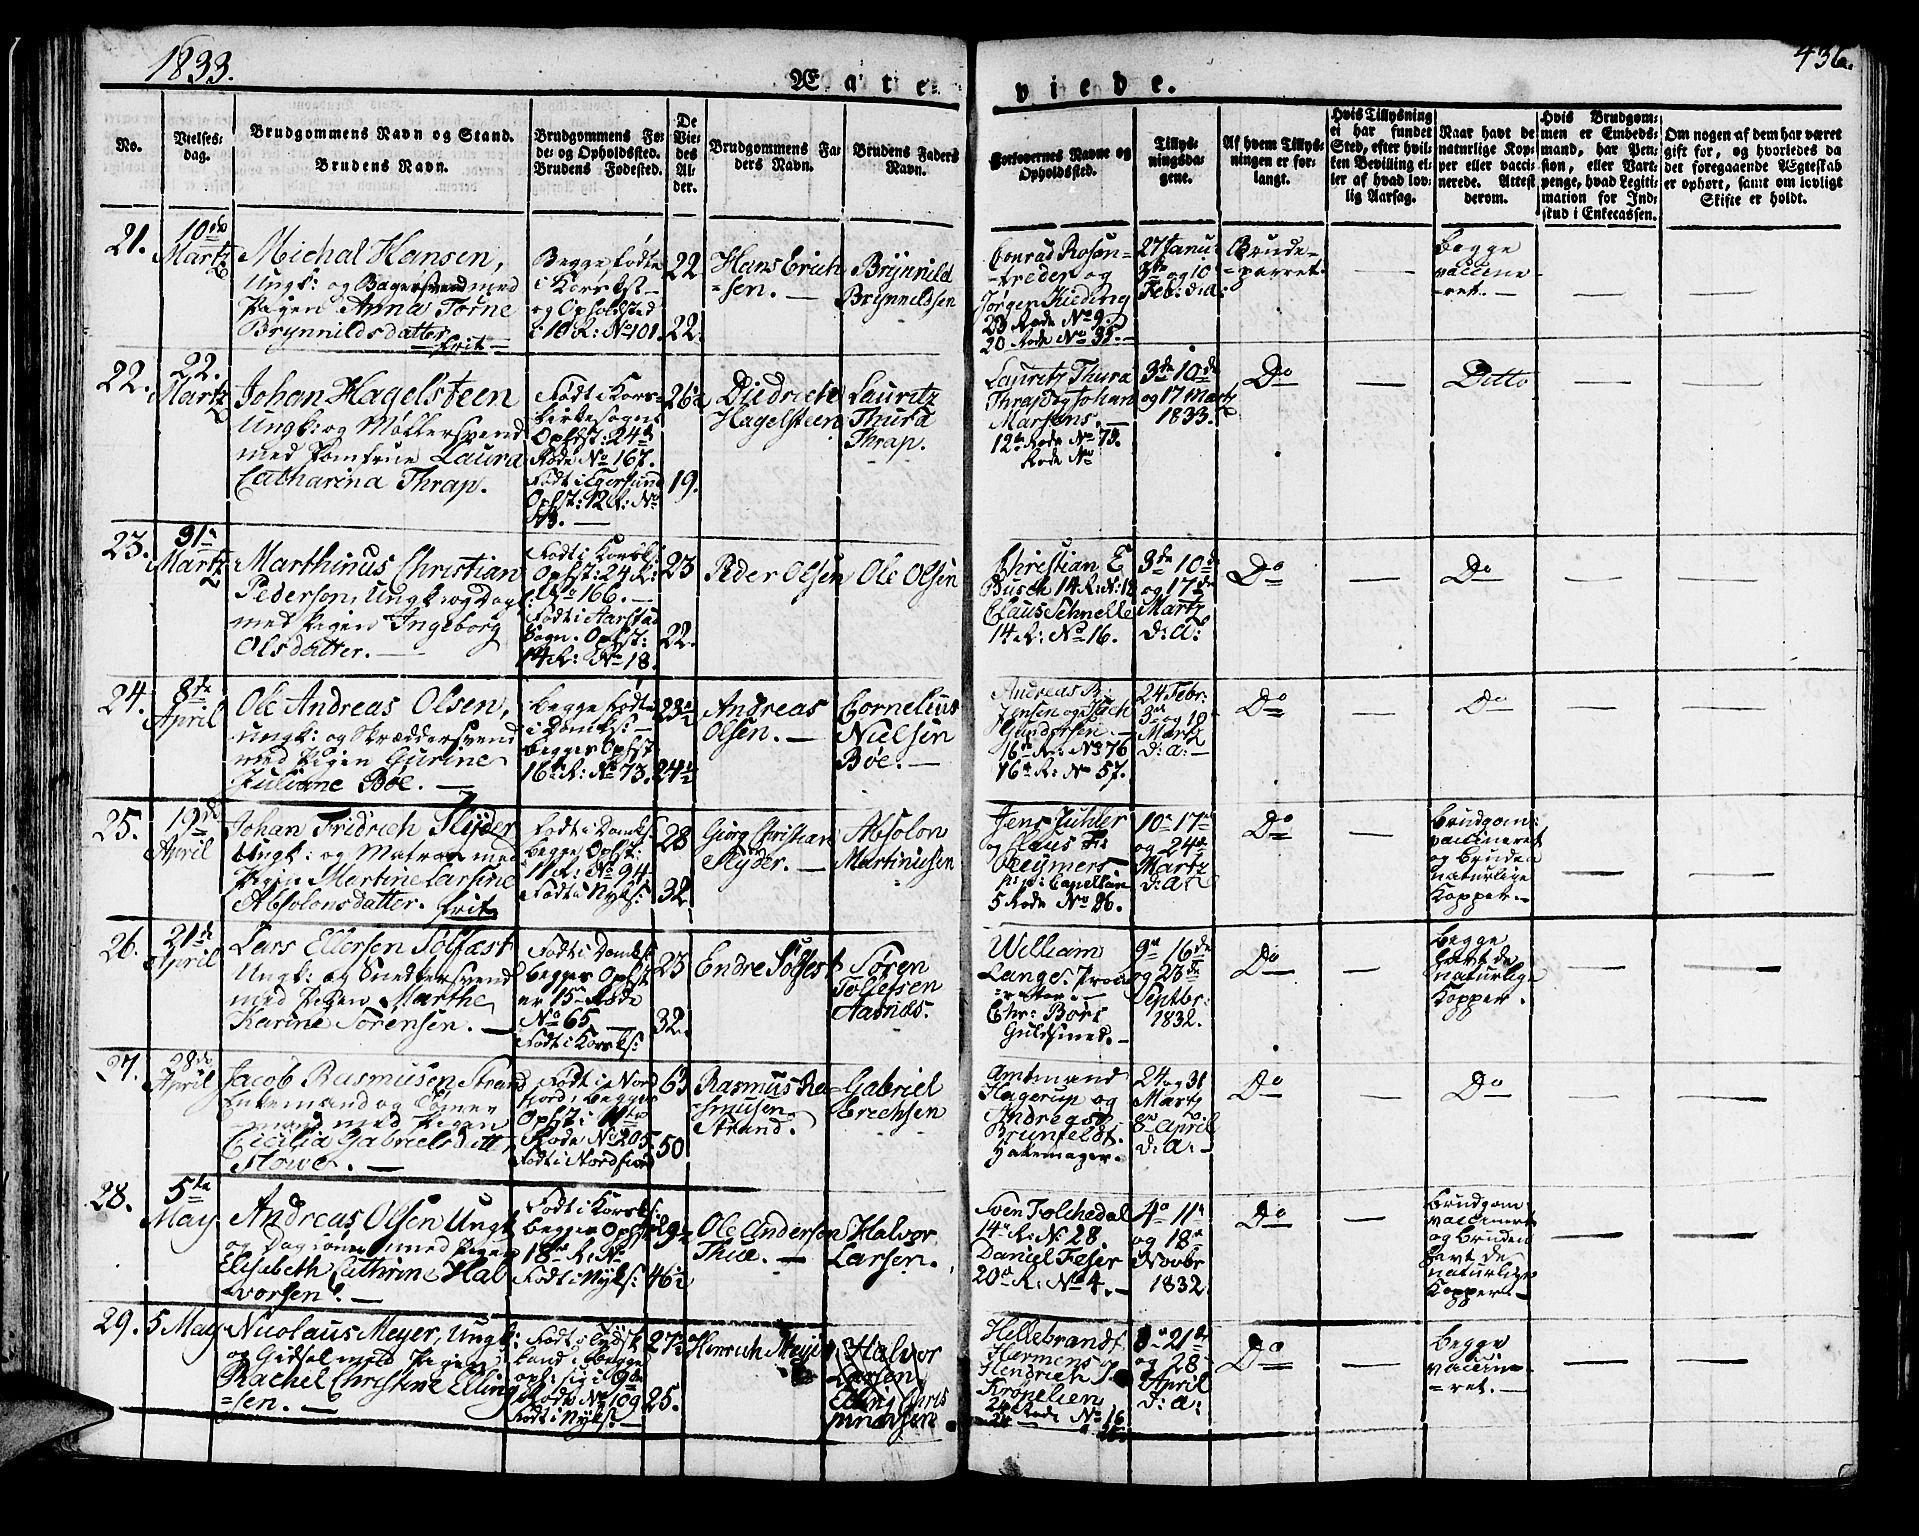 1833.
436.
Æ g t e v i e d e.
No.
Vielses-
dag.
Brudgommens Navn og Stand.
Brudens Navn.
Brudgommens Fø-
de- og Opholdssted.
Brudens Fødested.
De
Vie-
des
Al-
der.
Brudgommens Fa-
ders Navn.
Brudens Faders
Navn.
Forlovernes Navne og
Opholdssted.
Tillys-
ningsda-
gene.
Af hvem Tillys-
ningen er for-
langt.
Hvis Tillysning
ei har fundet
Sted, efter hvil-
ken Bevilling el-
ler af hvad lov-
lig Aarsag.
Naar havt de
naturlige Kop-
per eller vacci-
nerede. Attest
derom.
Hvis Brudgom-
men er Embeds-
mand, har Pen-
sion, eller Vart-
penge, hvad Legiti-
mation for Ind-
skud i Enkecassen.
Om nogen af dem har været
gift før, og hvorledes da
det foregaaende Ægteskab
er ophørt, samt om lovligt
Skifte er holdt.
21.
10de
Martz
Michal Hansen,
Ungk: og Bagersvend med
Pigen Anna Torne
Brynnildsdatter
frit
Begge fødte
i Korskst
og Opholdsted
i 10 R: No 101.
22
22.
Hans Erich
=sen. —
Brynnild
Brynnildsen
Conrad Rosen-
treder og
Jørgen Kieding
23 Rode No 9.
20 Rode No 35. —
27 Janu:
3de og 10
Feb: d: a:
Brude-
=parret.
—
Begge
vaccine
=ret. —
—
—
22.
22.
Martz
Johan Hagelsteen
Ungk: og Møllersvend
med Jomfrue Laura
Catharina Thrap.
Født i Kors-
kirke sogn
Ophst: 24de
Rode No 167.
Født i Egersund
Ophst: 12 R: No
73. —
26½
19.
Didrich
Hagelsteen
Lauritz
Thura
Thrap.
Lauritz Thura
Thrap og Johan
Martens, —
12te Rode No 73.
Rode No
3de 10de
og 17 Martz
1833.
Do
—
Ditto
—
—
23.
31te
Martz
Marthinus Christian
Pedersen, Ungk: og Dagk:
med Pigen Ingeborg
Olsdatter. —
Født i Korsk:
Ophst: 24 R:
No 166. —
Født i Aarstad
Sogn. Ophst:
14 R: No 18.
23
22.
Peder Olsen
Ole Olsen
Christian E
Busch 14 R: N: 18
Claus Schnelle
14 R: No 16.
3de 10de
og 17de
Martz
d: a:
Do
—
Do
—
—
24.
8de
April
Ole Andreas Olsen,
ungk: og Skræddersvend
med Pigen Gurine
Juliane Bøe. —
Begge fødte
i Domks: —
begges Ophst
16de R: No 73.
23½
24½
Andreas
Olsen. —
Cornelius
Nielsen
Bøe. —
Andreas B:
Jensen og Isach
Gundersen. —
16de R: No 76
16de R: No 57.
24 Febr:
3de og 10
Martz
d: a: —
Do
—
Do
—
—
25.
19de
April
Johan Fridrich Slyder
Ungk: og Matros med
Pigen Martine Larsine
Absolonsdatter. frit
Født i Domks:
begge Ophst:
11 R: No 94
Født i Nyks:
28
32.
Giørg Christian
Slyder. —
Absolon
Martinussen
Jens Juhler
og Claus Fr:
Weymers
Capellan
5 Rode No 26.
10de 17de
og 24de
Martz
d: a:
Do
—
Brudgom:
vaccineret
og Bruden
naturlige
Kopper. —
—
—
26.
21de
April
Lars Ellersen Solfæst
Ungk: og Snedkersvend
med Pigen Marthe
Karine Sørensen. —
Født i Domks:
begges Ophst
er 15de Rode
No 65 —
Født i Korsk:
23
32.
Endre Solfest
Søren
Tollefsen
Aasnæs.
William
Lange.
Chr: Børs
Guldsmed. —
9de 16de
og 23de
Septbr:
1832.
Do
—
Begge
havt de
naturlige
Kopper.
—
—
27.
28de
April
Jacob Rasmusen Strand
Enkemand og Tømer
=mand med Pigen
Cicilia Gabrielsdattr
Stowe. —
Født i Nord
fjord, begges
Ophst: 11te
Rode No 205
Født i Nordfiord
63
50
Rasmus Ra
=smusen
Strand.
Gabriel
Erichsen
Amtmand
Hagerup og
Andreas
Brunfeldt.
Hattemager. —
24 og 31
Martz
8de April
d: a: —
Do
—
Do
—
—
28.
5te
May
Andreas Olsen Ungk
og Dag med Pigen
Elisebeth Cathrine Hal
vorsen. —
Født i Korsk:
begges Ophst
18de R: No
Født i Nyks:
29½
46½
Ole Anderson
Thue. —
Halvor
Larsen.
Sven Tolchedal
14de R: N: 28.
Daniel Fejer
20de R: No 4. —
4de 11te
og 18de
Novbr
1832
Do
—
Brudgom
vaccineret
og Bruden
havt de
naturlige
Kopper —
—
—
29.
5 May
Nicolaus Meyer, Ungk:
og Gidsel med Pigen
Rachel Christine Elling
=sen. —
Født i Tydsk
land, begge
oph: sig i 9de
Rode No 109
Født i Nyks: —
27½
25.
Henrich Meyer
Halvor
Larsen
Elling Chris
Hellebrandt
Harmens
Hendrich J.
Kropelien
24 Rode No 16
8de 21de
og 28
April
d: a:
Do
—
Begge
vaccine-
=ret. —
—
—